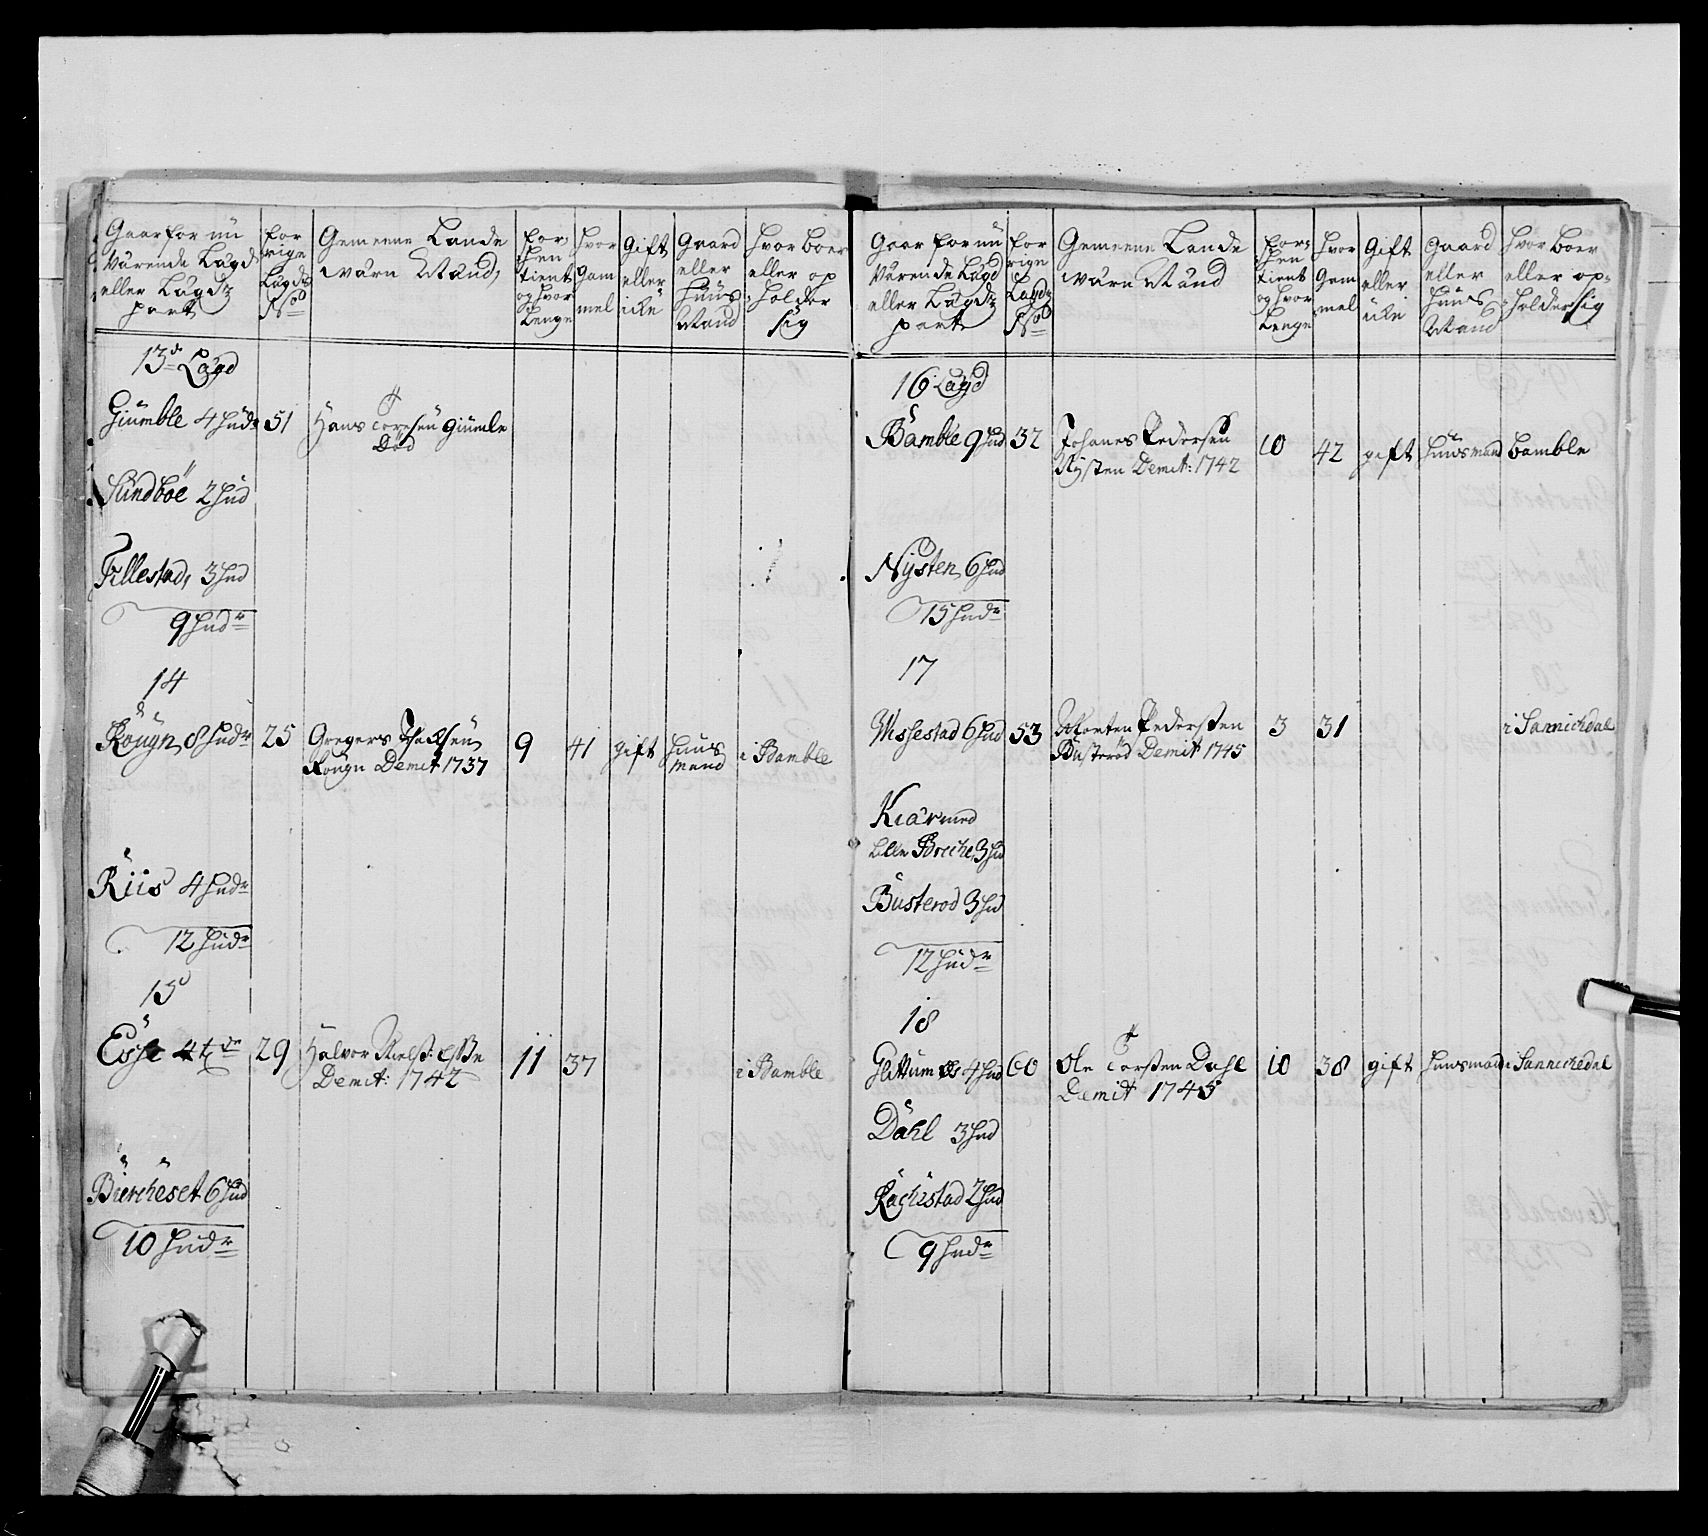 Gaar for nu
värende Lägd
eller Lägdz
part
for
rige
Lägdz
No
Gemeene Lande
wärn Mænd,
for,
hen
tient
og hvor
Lenge
hvor
Gam
mel
Gift
eller
icke
Gaard
eller
Huus
Mand
hvor boer
eller op
holder
sig
13de Lägd
Giümble 4 Hudr 51 Hans Torsen Giumle
Död
Sundböe 2 Hud
Fillestad, 3 Hud
9 Hudr
14
Rougn 8 Hudr 25 Gregers Isacksen
Rougn Demit 1737 9 41 gift Huus
mand i Bamble
Riis 4 Hudr
12 Hudr
15
29 Halvor Nielss:
Demit: 1742 11 37 i Bamble
Biercheset 6 Hud
10 Hudr
Gaar for nu
värende Lägd
eller Lägdz
part
for
rige
Lagdz
No
Gemeene Lande
wärn Mänd
for,
hen
tient
og hvor
Lenge
hvor
Gam
mel
Gift
eller
icke
Gaard
eller
Huus
Mand
hvor boer
eller op-
holder sig
16 Lagd
Bamble 9 Hud 32 Johanes Pedersen
Nysten Demit: 1742 10 42 gift Huusmand bamble
Nysten 6 Hud
15 Hudr
17
Vissestad 6 Hud 53 Morten Pedersen
Busteröd Demit 1745 3 31 i Sannichdal
Kiär med
Lille Breche 3 Hud
Busterod 3 Hud
12 Hudr
18
Glittum 4 Hud 60 Ole Torsten Dahl
Demit 1745 10 38 gift Huusmand i Sannichedal
Dahl 3 Hud
Rachestad 2 Hud
9 Hudr